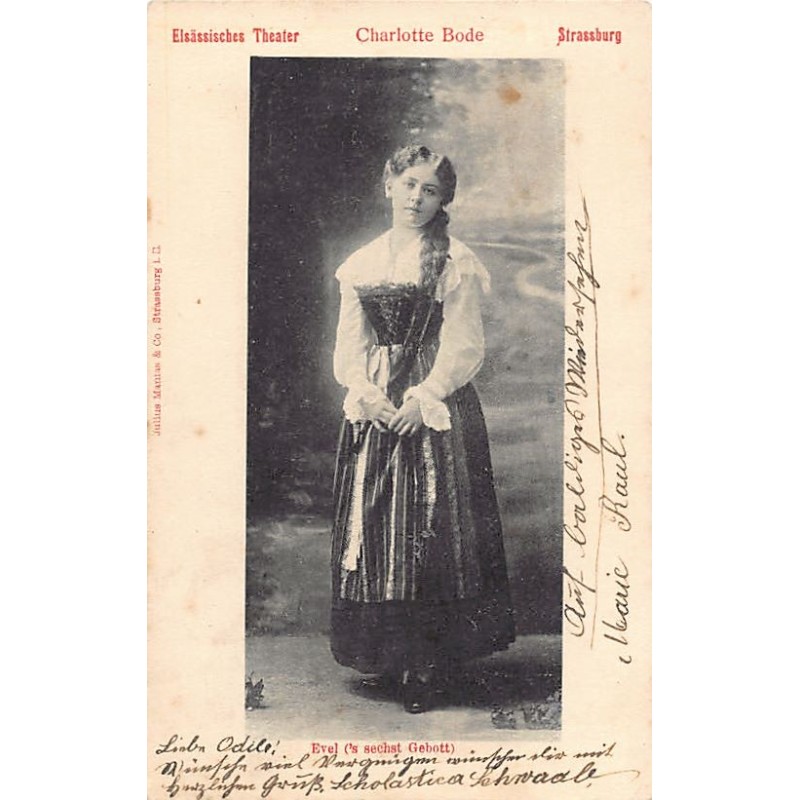 Elsässisches Theater Charlotte Bode Strassburg
Julius Manias & Co, Strassburg i. E.
Auf baldiges Wiedersehen
Marie Raul.
Evel ('s sechst Gebott)
Liebe Odile!
Wünsche viel Vergnügen wünschen dir mit
Herzlichen Gruß, Scholastica Schwaab